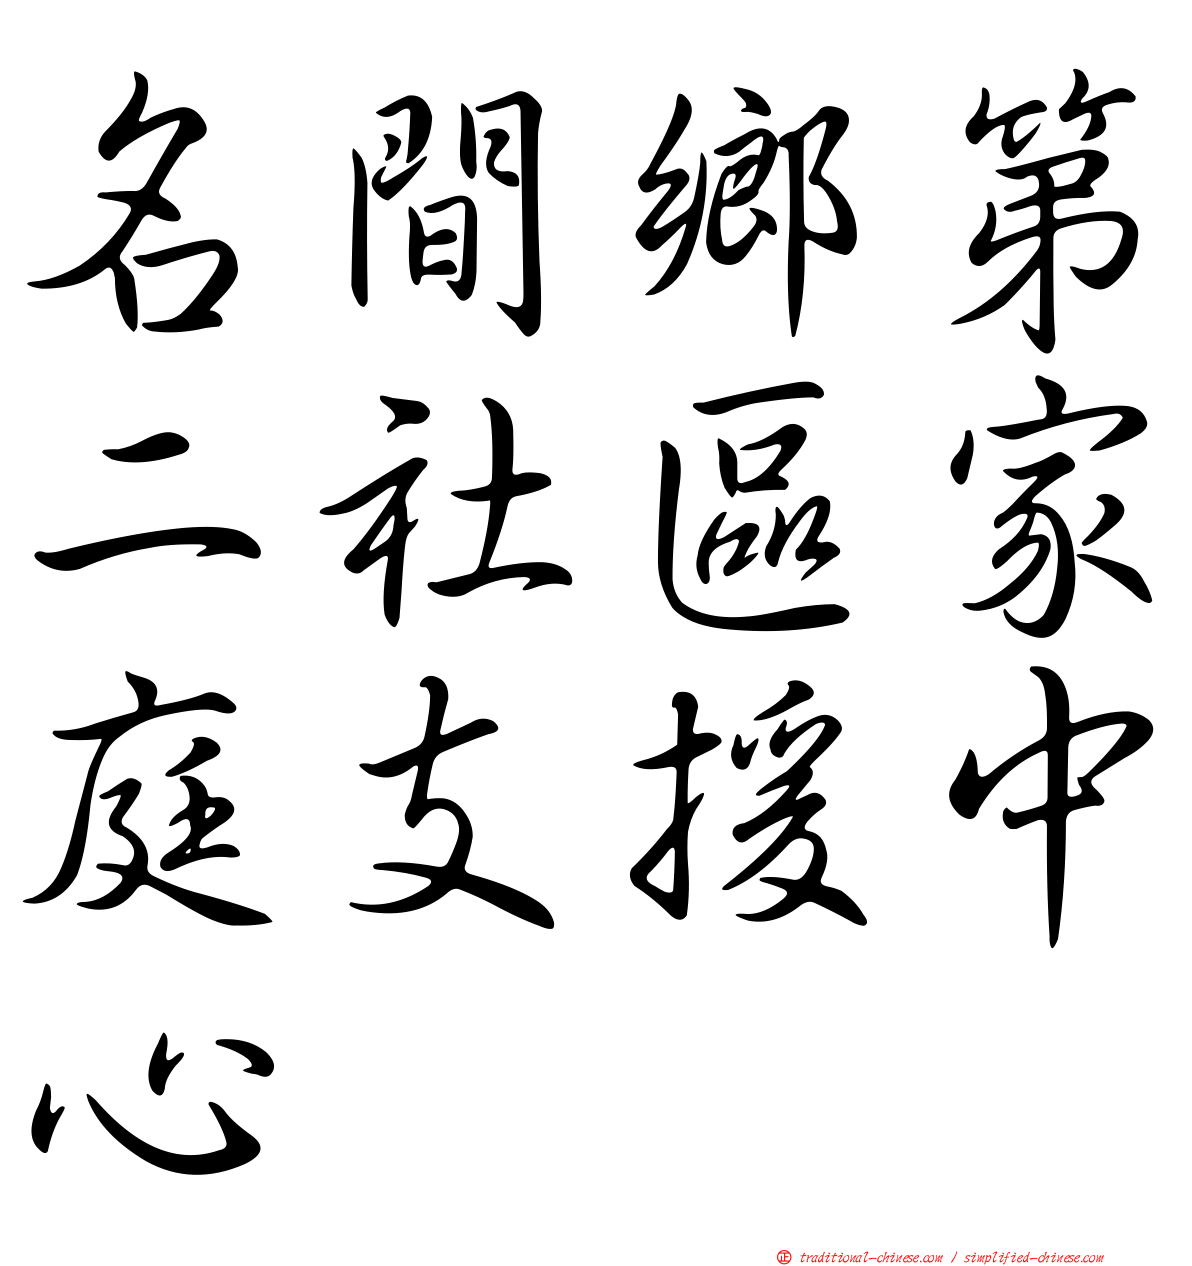 名間鄉第
二社區家
庭支援中
心
正 traditional-chinese.com / simplified-chinese.com